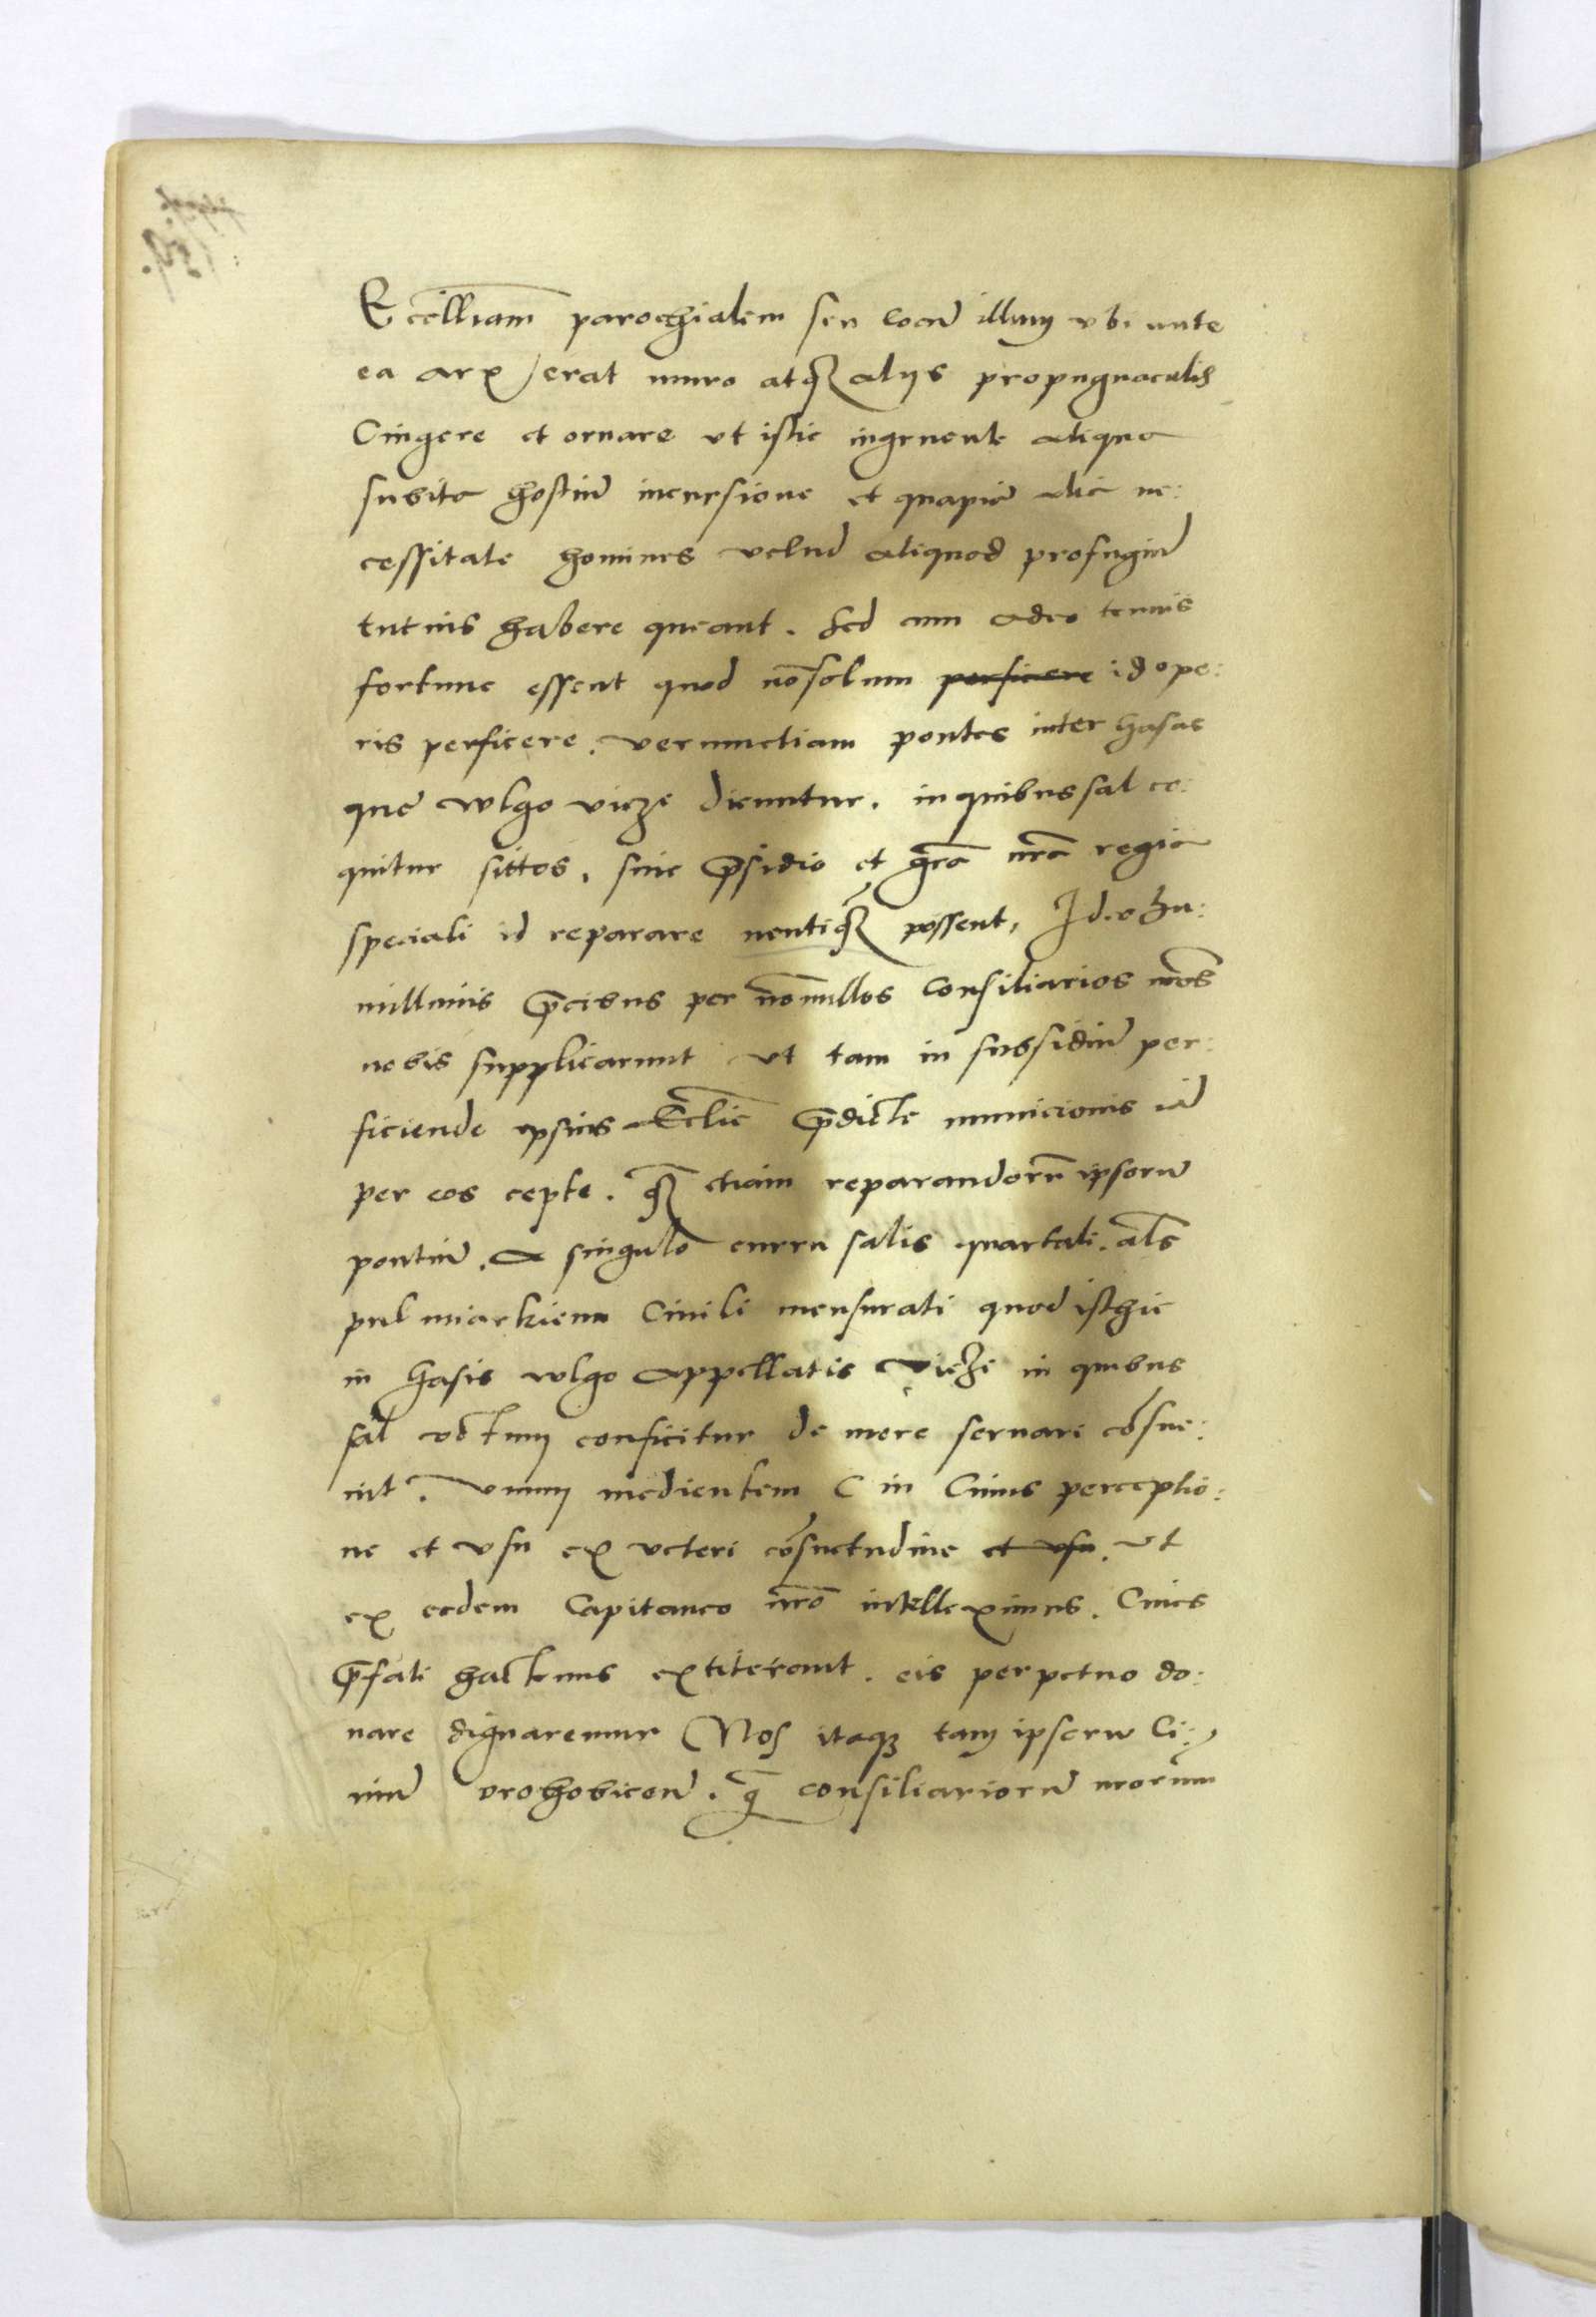 Eccelliam parochialem seu locũ illum vbi ante
ea arx erat muro atq3 alijs propugnaculis
Cingere et ornare vt istic ingruente aliqua
subita hostiũ incursione et quapiã alia ne:
cessitate homines velud aliquod profugiũ
tutius habere queant. Sed cum adeo tenuis
fortune essent quod nõ solum perficere id ope:
ris perficere. verumetiam pontes inter Casas
que wlgo vieze dicuntur. in quibus sal co:
quitur sittos, sine p̃sidio et gr̃a nr̃a regia
speciali id reparare neutiq3 possent, Ideo hu:
millimis p̃cibus per nõnullos Consiliarios nr̃os
nobis supplicarunt vt tam in subsidiũ per:
ficiende ipsius Ecclie p̃dicte municionis iã
per eos cepte. q3 etiam reparandorũ ipsorũ
pontiũ. A singulo curru salis quartali. al̃s
pul miarkiem Ciuili mensurati quod isthic
in Casis wlgo appellatis Vieże in quibus
sal coctum conficitur de more seruari cõsue:
uit. Vnum medientem C in Cuius perceptio:
ne et vsu ex veteri cõsuetudine et vsu. vt
ex eodem Capitaneo nr̃o intelleximus. Ciues
p̃fati hactenus extiterunt. eis perpetuo do:
nare dignaremur Nos itaq3 tam ipsorũ Ci:
uiũ drohobicen̄. q̃ consiliariorũ nrorum